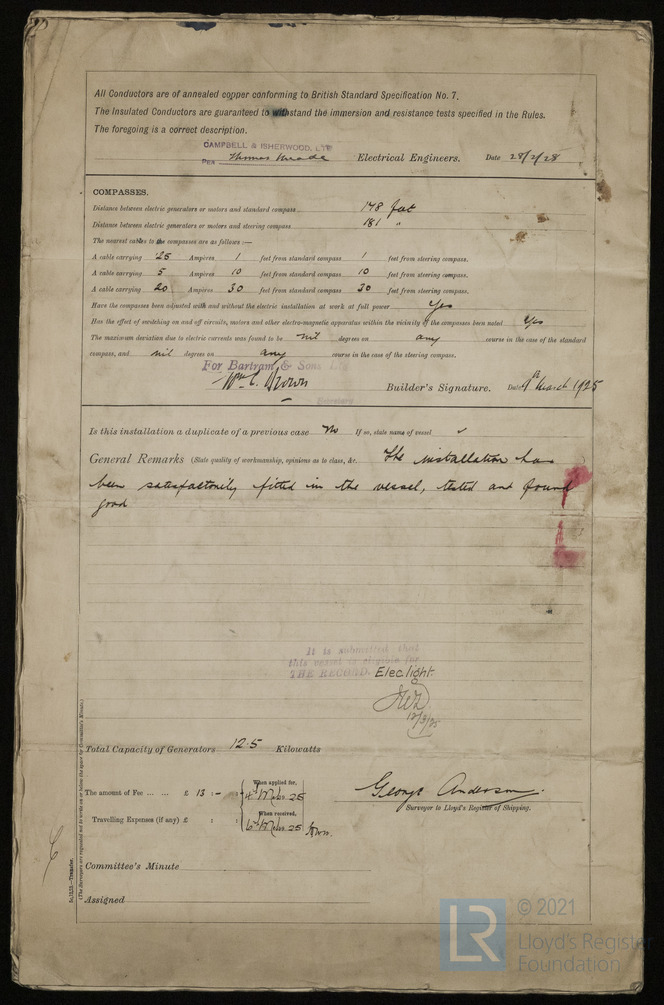 All Conductors are of annealed copper conforming to British Standard Specification No. 7.
The Insulated Conductors are guaranteed to withstand the immersion and resistance tests specified in the Rules.
The foregoing is a correct description.
CAMPBELL & ISHERWOOD, LTD
PER Thomas Meade Electrical Engineers. Date 28/2/25
COMPASSES.
Distance between electric generators or motors and standard compass 148 feet
Distance between electric generators or motors and steering compass 181 "
The nearest cables to the compasses are as follows :—
A cable carrying .25 Ampères 1 feet from standard compass 1 feet from steering compass.
A cable carrying 5 Ampères 10 feet from standard compass 10 feet from steering compass.
A cable carrying 20 Ampères 30 feet from standard compass 30 feet from steering compass.
Have the compasses been adjusted with and without the electric installation at work at full power Yes
Has the effect of switching on and off circuits, motors and other electro-magnetic apparatus within the vicinity of the compasses been noted Yes
The maximum deviation due to electric currents was found to be nil degrees on any course in the case of the standard
compass, and nil degrees on any course in the case of the steering compass.
For Bartram & Sons Ltd
Wm C. Brown Builder's Signature. Date March 1925
Secretary
Is this installation a duplicate of a previous case No If so, state name of vessel
General Remarks (State quality of workmanship, opinions as to class, &c. The installation has
been satisfactorily fitted in the vessel, tested and found
good
It is submitted that
this vessel is eligible for
THE RECORD. Elec. light.
12/3/25
Total Capacity of Generators 12.5 Kilowatts
The amount of Fee ... ... £ 13 : - : When applied for, 4th Mar 25
George Anderson.
Surveyor to Lloyd's Register of Shipping.
Travelling Expenses (if any) £ : : When received, 6th Mar 25
Committee's Minute
Assigned
(The Surveyors are requested not to write on or below the space for Committee's Minute.)
LR © 2021
Lloyd's Register
Foundation